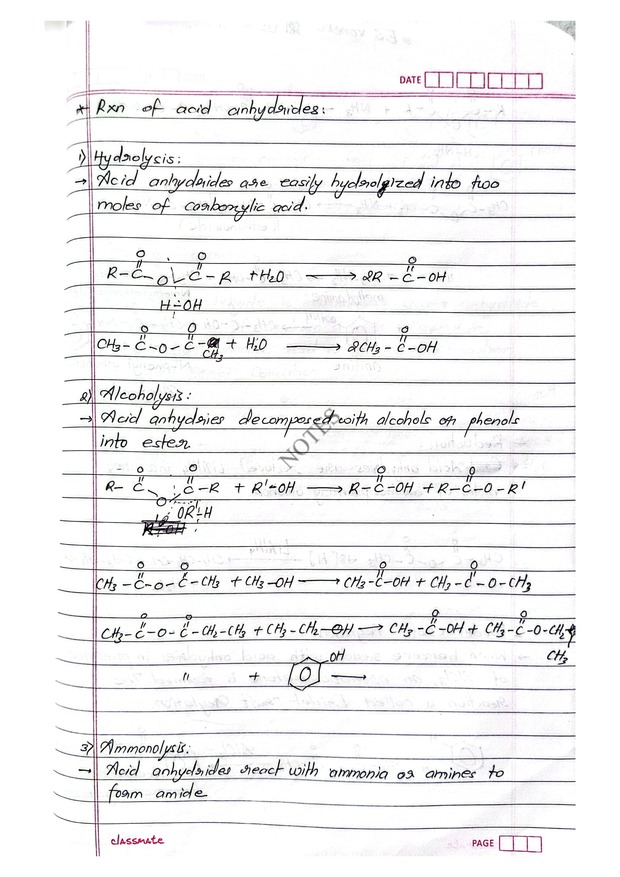 DATE
* Rxn of acid anhydrides:
1) Hydrolysis:
→ Acid anhydrides are easily hydrolyized into two
moles of carboxylic acid.
O O O
R-C-O-C-R + H2O → 2R-C-OH
H-OH
O O O
CH3-C-O-C-CH3 + H2O → 2CH3-C-OH
2) Alcoholysis:
→ Acid anhydries decomposed with alcohols or phenols
into ester
NOTES
O O O O
R-C-O-C-R + R'-OH → R-C-OH + R-C-O-R'
OR'-H
O O O O
CH3-C-O-C-CH3 + CH3-OH → CH3-C-OH + CH3-C-O-CH3
O O O O
CH3-C-O-C-CH2-CH3 + CH3-CH2-OH → CH3-C-OH + CH3-C-O-CH2
CH3
" + OH →
3) Ammonolysis:
→ Acid anhydrides react with ammonia or amines to
form amide
classmate PAGE